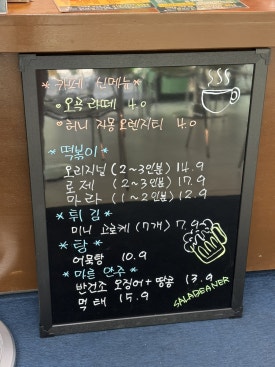 * 카페 신메뉴 *
• 오곡라떼 4.0
• 허니 자몽 오렌지티 4.0
* 떡볶이 *
오리지널 (2~3인분) 14.9
로제 (2~3인분) 17.9
마라 (1~2인분) 12.9
* 튀김 *
미니 고로케 (7개) 7.9
* 탕 *
어묵탕 10.9
* 마른 안주 *
반건조 오징어 + 땅콩 13.9
먹태 15.9
SALADEANER